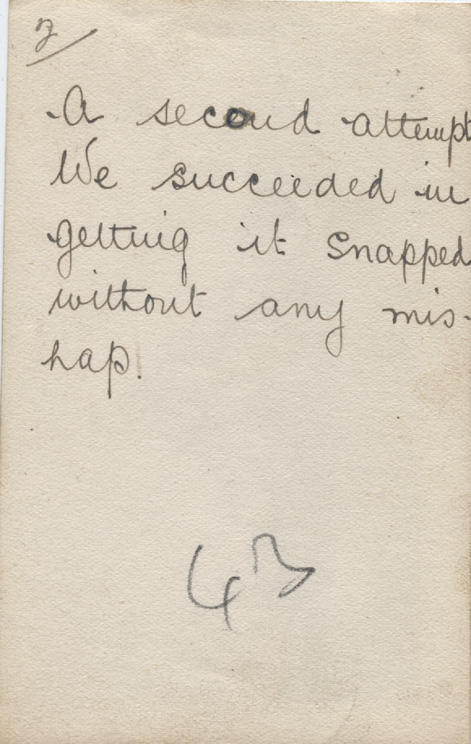 2/
A second attempt
We succeeded in
getting it snapped
without any mis-
hap!
43